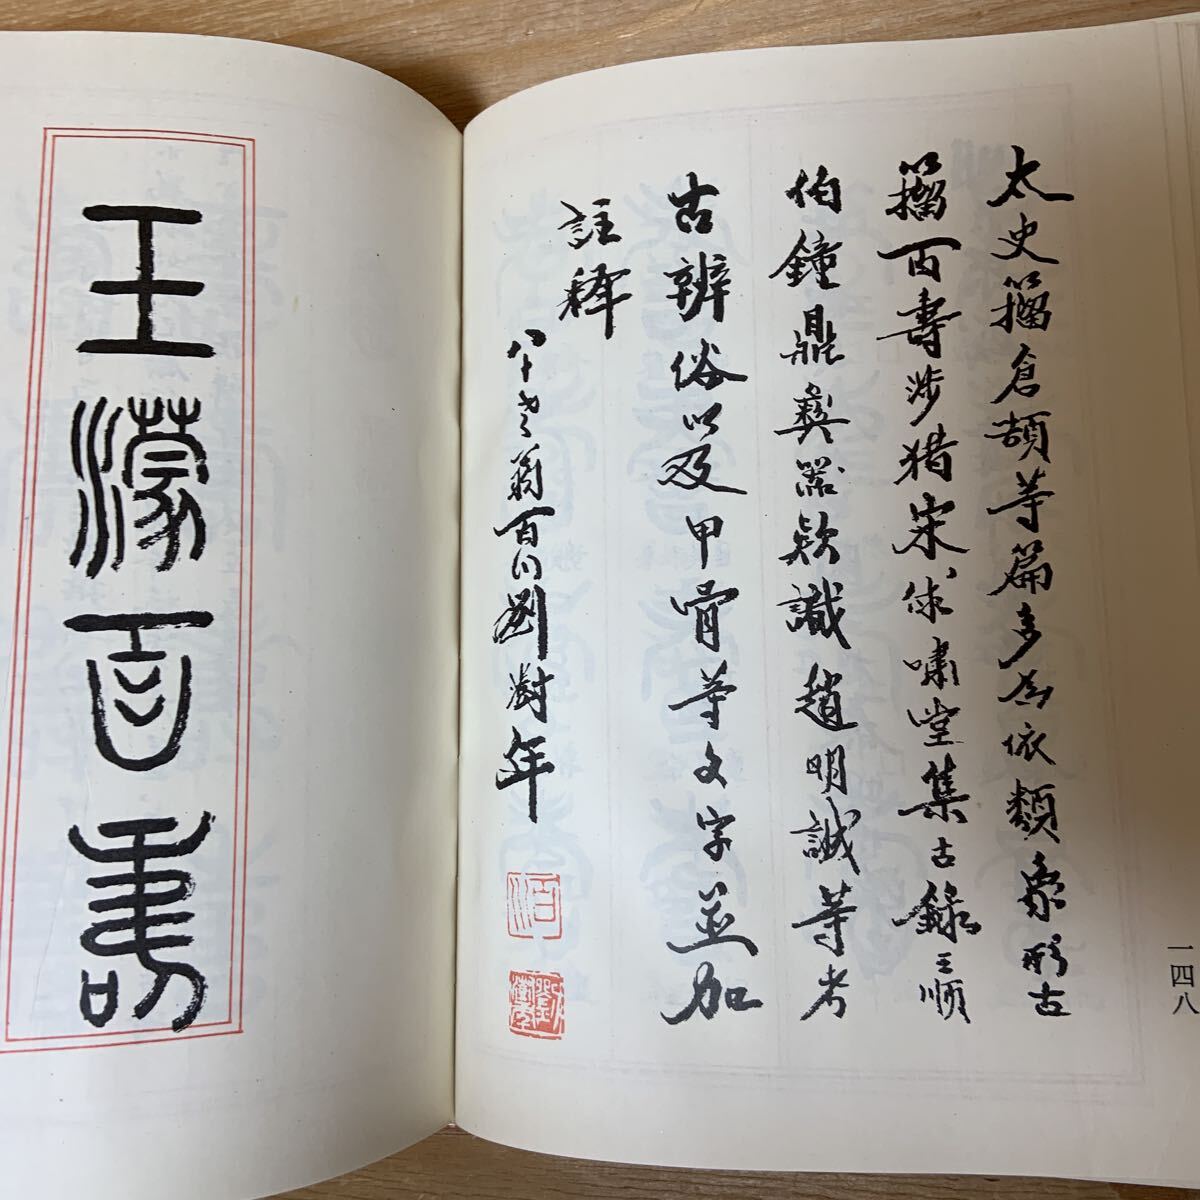 太史籀倉頡等篇多為依類象形古
籀百壽涉猎宋俅嘯堂集古錄王順
伯鐘鼎彝器款識趙明誠等考
古辨俗以及甲骨等文字並加
註釋
八十老翁百川劉澍年
一四八
王濛百壽